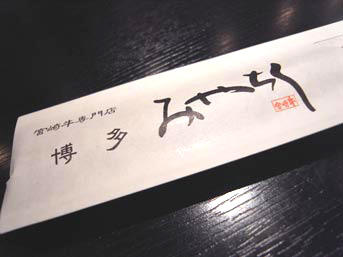 宮崎牛専門店
博多 みやちく